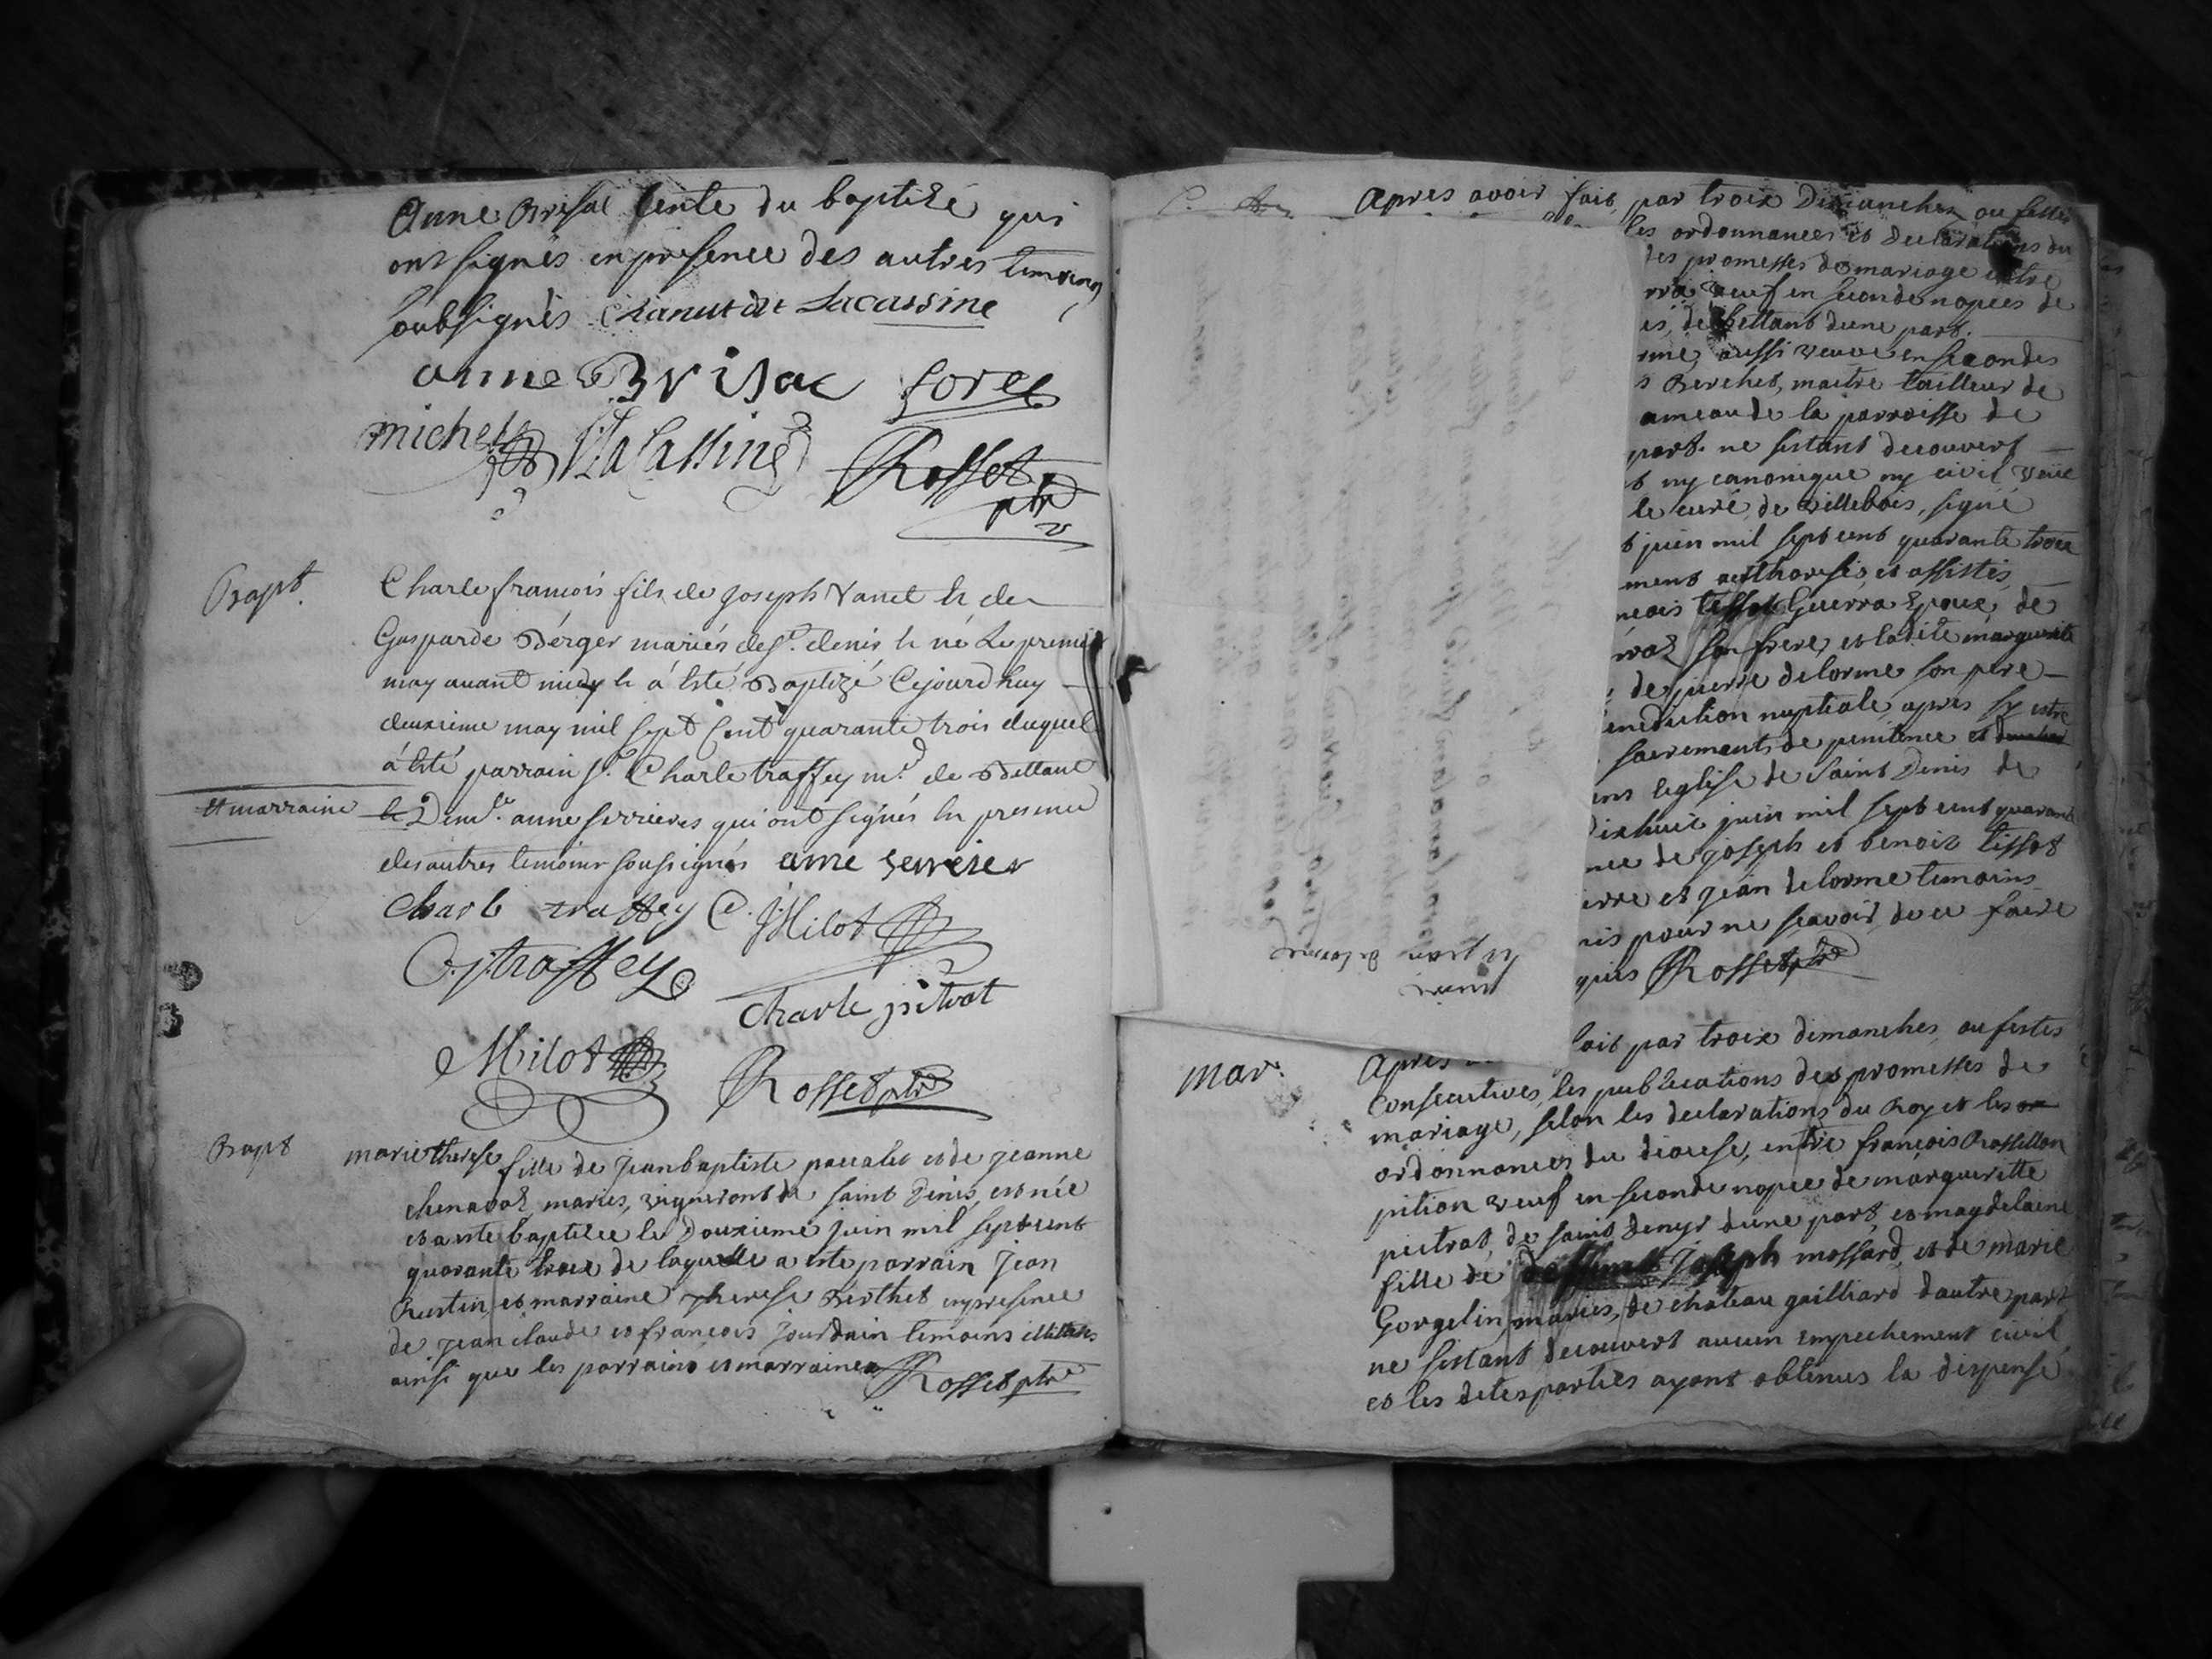 Anne Brisac tente du baptisé qui
ont signés en presence des autres temoins
soubsignés Chanut dit Lacassine
anne Brisac Sorel
michel Lacassine Rosset ptr
Bapt. Charle francois fils de Joseph Vanel & de
Gasparde Berger mariés de st. denis & né Le premier
may avant midy & á été Baptizé Cejourdhuy
deuxieme may mil sept Cent quarante trois duquel
á été parrain sr. Charle traffey md. de Bettant
et marraine
Demlle. anne serrieres qui ont signés En presence
des autres temoins soussignés ame serrier
Charle traffey C. J. Milot
C. J. traffey
charle pitrat
Milot Rosset ptr
Bapt marie therese fille de Jean baptiste pascalet et de Jeanne
chenavaz mariés, vigneront de saint Denis, est née
et a esté baptisée le Douxieme juin mil sept cent
quarante trois de laquelle a esté parrain Jean
Rustin, et marraine Therese Berthet en presence
de Jean claude et francois Jourdain temoins illitterés
ainsi que les parrains et marraines Rosset ptr
Apres avoir fait par troix Dimanches ou festes
les ordonnances et declarations du
des promesses de mariage entre
veuf en seconde nopces de
de bettant dune part.
aussi veuve en secondes
Berchet, maitre tailleur de
ameau de la parroisse de
part. ne sistant decouvert
ny canonique ny civil veüe
le curé de villebois, signé
juin mil sept cent quarante troix
ment authorisés et assistés
Guerra Epoux de
son frere, et ladite margueritte
de pierre delorme son pere
benediction nuptiale apres sy estre
sacrements de penitence et
leglise de Saint Denis de
dixhuit juin mil sept cent quarante
de joseph et benoit tissot
et jean delorme temoins
pour ne scavoir de ce faire
quis Rosset ptr
mar. Apres fait par troix dimanches ou festes
Consecutives, les publications des promesses de
mariage, selon les declarations du Roy et les or
ordonnances du diocese, entre francois Rossillon
pition veuf en seconde nopce de margueritte
pictrat, de saint Denys dune part, et magdelaine
fille de Joseph mossard, et de marie
Gorgelin, mariés, de chateau gailliard dautre part
ne sistant decouvert aucun empechement civil
et les dites parties ayant obtenus la dispense